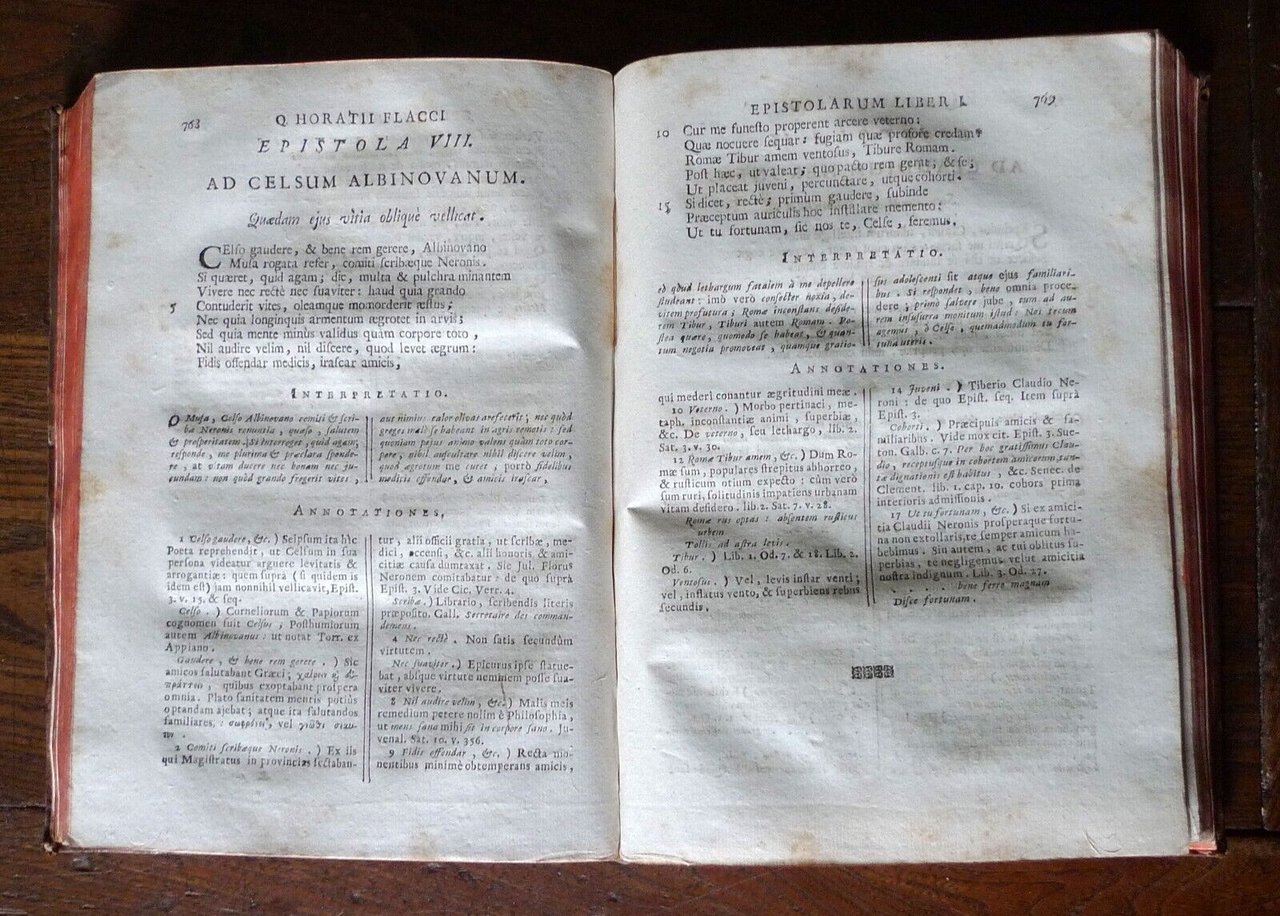 763
Q HORATII FLACCI
EPISTOLA VIII.
AD CELSUM ALBINOVANUM.
Quædam ejus vitia obliquè vellicat.
CElso gaudere, & bene rem gerere, Albinovano
Musa rogata refer, comiti scribæque Neronis.
Si quæret, quid agam; dic, multa & pulchra minantem
Vivere nec rectè nec suaviter: haud quia grando
5 Contuderit vites, oleamque momorderit æstus;
Nec quia longinquis armentum ægrotet in arvis;
Sed quia mente minus validus quàm corpore toto,
Nil audire velim, nil discere, quod levet ægrum:
Fidis offendar medicis, irascar amicis,
INTERPRETATIO.
O Musa, Celso Albinovano comiti & scri-
bæ Neronis renuntia, quæso, salutem
& prosperitatem. Si interroget, quid agam;
responde, me plurima & præclara sponde-
re, at vitam ducere nec bonam nec ju-
cundam: non quòd grando fregerit vites,
aut nimius calor olivas arefecerit; nec quòd
greges malè se habeant in agris remotis: sed
quoniam pejus animo valens quàm toto cor-
pore, nihil auscultare nihil discere velim,
quod ægrotum me curet, portò fidelibus
medicis offendar, & amicis irascar,
ANNOTATIONES,
1 Celso gaudere, &c.) Seipsum ita hîc
Poeta reprehendit, ut Celsum in sua
persona videatur arguere levitatis &
arrogantiæ: quem suprà (si quidem is
idem est) jam nonnihil vellicavit, Epist.
3. v. 15. & seq.
Celso.) Corneliorum & Papiorum
cognomen fuit Celsus; Posthumiorum
autem Albinovanus: ut notat Torr. ex
Appiano.
Gaudere, & bene rem gerere.) Sic
amicos salutabant Græci;
quibus exoptabant prospera
omnia. Plato sanitatem mentis potiùs
optandam ajebat; atque ita salutandos
familiares, : vel
2 Comiti scribæque Neronis.) Ex iis
qui Magistratus in provincias sectaban-
tur, alii officii gratia, ut scribæ, me-
dici, accensi, &c. alii honoris & ami-
citiæ causa dumtaxat. Sic Jul. Florus
Neronem comitabatur: de quo suprà
Epist. 3. Vide Cic. Verr. 4.
Scribæ.) Librario, scribendis literis
præposito. Gall. Secretaire des comman-
demens.
4 Nec rectè. Non satis secundùm
virtutem.
Nec suaviter.) Epicurus ipse statue-
bat, absque virtute neminem posse sua-
viter vivere.
8 Nil audire velim, &c.) Malis meis
remedium petere nolim è Philosophia,
ut mens sana mihi sit in corpore sano. Ju-
venal. Sat. 10. v. 356.
9 Fidis offendar, &c.) Recta mo-
nentibus minimè obtemperans amicis,
EPISTOLARUM LIBER I. 769
10 Cur me funesto properent arcere veterno:
Quæ nocuere sequar: fugiam quæ profore credam:
Romæ Tibur amem ventosus, Tibure Romam.
Post hæc, ut valeat; quo pacto rem gerat; & se;
Ut placeat juveni, percunctare, utque cohorti.
15 Si dicet, rectè; primum gaudere, subinde
Præceptum auriculis hoc instillare memento:
Ut tu fortunam, sic nos te, Celse, feremus.
INTERPRETATIO.
eò quòd lethargum fatalem à me depellere
studeant: imò verò consecter noxia, de-
vitem profutura; Romæ inconstans deside-
rem Tibur, Tiburi autem Romam. Po-
stea quære, quomodo se habeat, & quan-
tum negotia promoveat, quamque gratio-
sus adolescenti sit atque ejus familiari-
bus. Si respondet, bene omnia proce-
dere; primò salvere jube, tum ad au-
rem insusurra monitum istud: Nos tecum
agemus, ô Celse, quemadmodum tu for-
tuna uteris.
ANNOTATIONES.
qui mederi conantur ægritudini meæ.
10 Veterno.) Morbo pertinaci, me-
taph. inconstantiæ animi, superbiæ,
&c. De veterno, seu lethargo, lib. 2.
Sat. 3. v. 30.
12 Romæ Tibur amem, &c.) Dum Ro-
mæ sum, populares strepitus abhorreo,
& rusticum otium expecto: cùm verò
sum ruri, solitudinis impatiens urbanam
vitam desidero. lib. 2. Sat. 7. v. 28.
Romæ rus optas: absentem rusticus
urbem
Tollis ad astra levis.
Tibur.) Lib. 1. Od. 7. & 18. Lib. 2.
Od. 6.
Ventosus.) Vel, levis instar venti;
vel, inflatus vento, & superbiens rebus
secundis.
14 Juveni.) Tiberio Claudio Ne-
roni: de quo Epist. seq. Item suprà
Epist. 3.
Cohorti.) Præcipuis amicis & fa-
miliaribus. Vide mox cit. Epist. 3. Sue-
ton. Galb. c. 7. Per hoc gratissimus Clau-
dio, receptusque in cohortem amicorum, tan-
tæ dignationis est habitus, &c. Senec. de
Clement. lib. 1. cap. 10. cohors prima
interioris admissionis.
17 Ut tu fortunam, &c.) Si ex amici-
tia Claudii Neronis prosperaque fortu-
na non extollaris, te semper amicum ha-
bebimus. Sin autem, ac tui oblitus su-
perbias, te negligemus velut amicitia
nostra indignum. Lib. 3. Od. 27.
. . . . . . bene ferre magnam
Disce fortunam.